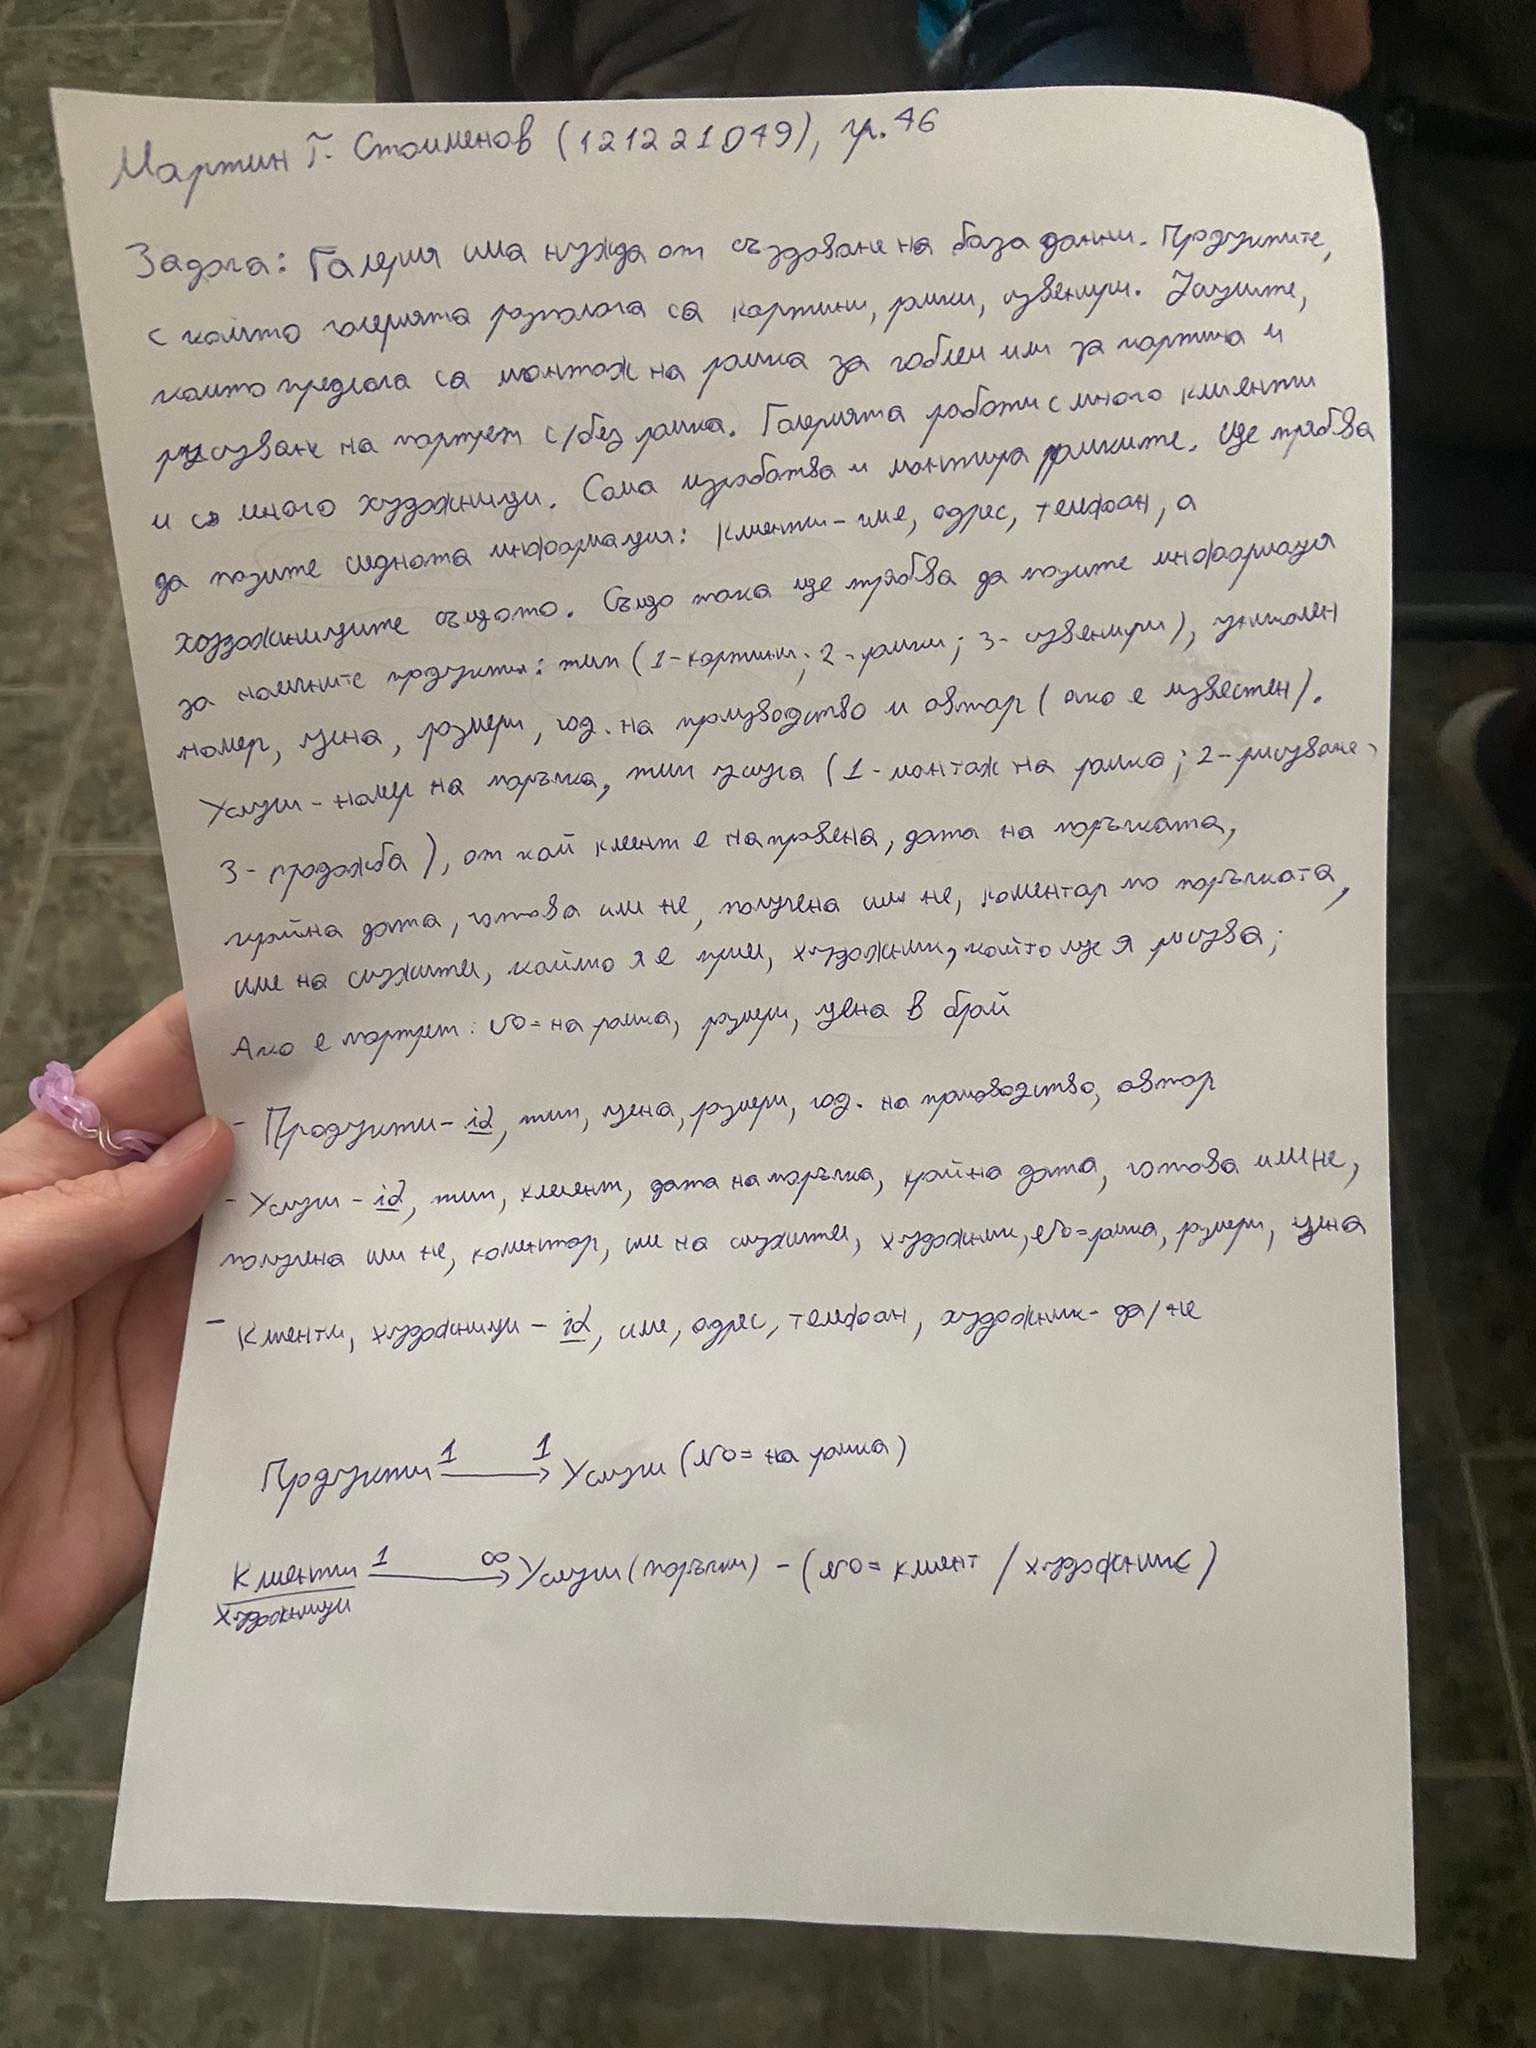 Мартин Г. Стоименов (121221049), гр. 46
Задача: Галерия има нужда от създаване на база данни. Продуктите,
с които галерията разполага са картини, рамки, сувенири. Услугите,
които предлага са монтаж на рамка за гоблен или за картина и
рисуване на портрет с/без рамка. Галерията работи с много клиенти
и с много художници. Сама изработва и монтира рамките. Ще трябва
да пазите следната информация: Клиенти - име, адрес, телефон, а
художниците същото. Също така ще трябва да пазите информация
за наличните продукти: тип (1-картини; 2-рамки; 3-сувенири), уникален
номер, цена, размери, год. на производство и автор (ако е известен).
Услуги - номер на поръчка, тип услуга (1-монтаж на рамка; 2-рисуване,
3-продажба), от кой клиент е направена, дата на поръчката,
крайна дата, готова или не, получена или не, коментар по поръчката,
име на служител, който я е приел, художник, който ще я рисува;
Ако е портрет: No= на рамка, размери, цена в брой
- Продукти - id, тип, цена, размери, год. на производство, автор
- Услуги - id, тип, клиент, дата на поръчка, крайна дата, готова или не,
получена или не, коментар, име на служител, художник, No= рамка, размери, цена
- Клиенти, художници - id, име, адрес, телефон, художник - да/не
Продукти 1 → 1 Услуги (No= на рамка)
Клиенти 1 → ∞ Услуги (поръчки) - (No= клиент / художник)
художници